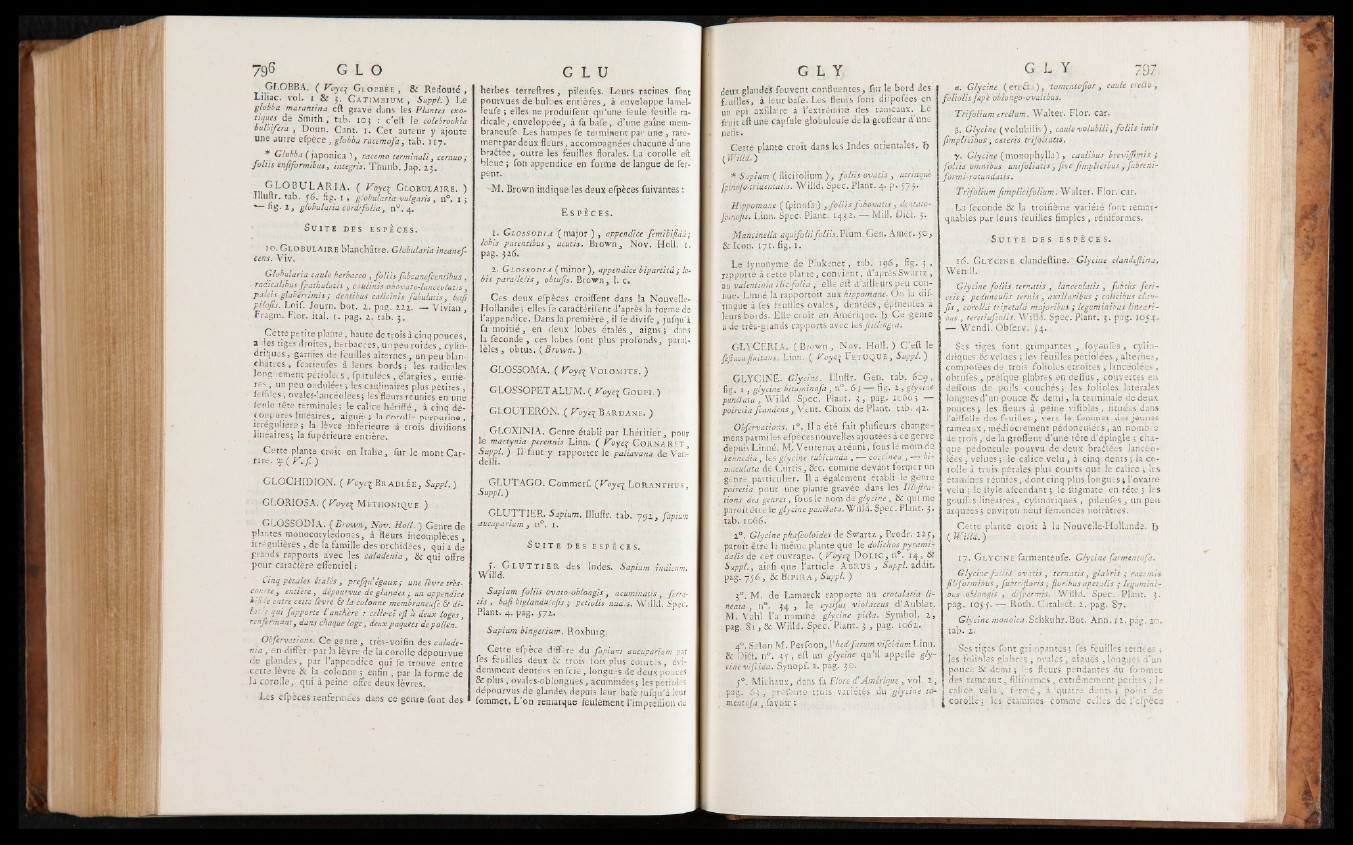 796 G L O
GLOBBA. ( Voyez GLOBBÉE, & Redouté,
Liliac. vol. 1 & 3. CATIMBIUM, Suppl. ) Le
globba marantina est gravé dans les Plantes exo-
tiques de Smith, tab. 103 : c'est le colebrockia
bulbifera, Donn. Cant. 1. Cet auteur y ajoute
une autre espèce, globba racemosa, tab. 117.
* Globba (japonica), racemo terminali, cernuo;
foliis ensiformibus, integris. Thunb. Jap. 23.
GLOBULARIA. ( Voyez GLOBULAIRE. )
Illustr. tab. 56. fig. 1, globularia vulgaris, n°. 1;
— fig. 2, globularia cordifolia, n°. 4.
SUITE DES ESPÈCES.
10. GLOBULAIRE blanchâtre. Globularia incanes-
cens. Viv.
Globularia caule herbaceo, foliis subcanescentibus,
radicalibus spathulatis, caulinis obovato-lanceolatis,
paleis glaberrimis; dentibus calicinis subulatis, basi
pilosis. Loif. Journ. bot. 2. pag. 222. — Vivian,
Fragm. Flor. ital. 1. pag. 2. tab. 3.
Cette petite plante, haute de trois à cinq pouces,
a des tiges droites, herbacées, un peu roides, cylin-
driques, garnies de feuilles alternes, un peu blan-
châtres, scarieuses à leurs bords; les radicales
longuement pétiolées, spatulées, élargies, entiè-
res, un peu ondulées; les caulinaires plus petites,
sessiles, ovales-lancéolées; les fleurs réunies en une
seule tête terminale; le calice hérissé, à cinq dé-
coupures linéaires, aiguës; la corolle purpurine,
irrégulière; la lèvre inférieure à trois divisions
linéaires; la supérieure entière.
Cette plante croît en Italie, sur le mont Car-
rare. ♃ ( V. s. )
GLOCHIDION. ( Voyez BRADLÉE, Suppl. )
GLORIOSA. ( Voyez MÉTHONIQUE )
GLOSSODIA. ( Brown, Nov. Holl. ) Genre de
plantes monocotylédones, à fleurs incomplètes,
irrégulières, de la famille des orchidées, qui a de
grands rapports avec les caladenia, & qui offre
pour caractère essentiel :
Cinq pétales étalés, presqu'égaux; une lèvre très-
courte, entière, dépourvue de glandes; un appendice
bifide entre cette lèvre & la colonne membraneuse & di-
latée qui supporte l'anthère : celle-ci est à deux loges,
renfermant, dans chaque loge, deux paquets de pollen.
Observations. Ce genre, très-voisin des calade-
nia, en diffère par la lèvre de la corolle dépourvue
de glandes, par l'appendice qui se trouve entre
cette lèvre & la colonne; enfin, par la forme de
la corolle, qui à peine offre deux lèvres.
Les espèces renfermées dans ce genre sont des
G L U
herbes terrestres, pileuses. Leurs racines sont
pourvues de bulbes entières, à enveloppe lamel-
leuse; elles ne produisent qu'une seule feuille ra-
dicale, enveloppée, à sa base, d'une gaîne mem-
braneuse. Les hampes se terminent par une, rare-
ment par deux fleurs, accompagnées chacune d'une
bractée, outre les feuilles florales. La corolle est
bleue; son appendice en forme de langue de ser-
pent.
M. Brown indique les deux espèces suivantes :
ESPÈCES.
1. GLOSSODIA (major), appendice semibifidâ;
lobis patentibus, acutis. Brown, Nov. Holl. 1.
pag. 326.
2. GLOSSODIA (minor), appendice bipartitâ; lo-
bis parallelis, obtusis. Brown, l. c.
Ces deux espèces croissent dans la Nouvelle-
Hollande; elles se caractérisent d'après la forme de
l'appendice. Dans la première, il se divise, jusqu'à
sa moitié, en deux lobes étalés, aigus; dans
la seconde, ces lobes sont plus profonds, paral-
lèles, obtus. ( Brown. )
GLOSSOMA. ( Voyez VOLOMITE. )
GLOSSOPETALUM. ( Voyez GOUPI. )
GLOUTERON. ( Voyez BARDANE. )
GLOXINIA. Genre établi par Lhéritier, pour
le martynia perennis Linn. ( Voyez CORNARET,
Suppl. ) Il faut y rapporter le paliavana de Van-
delli.
GLUTAGO. Commers. ( Voyez LORANTHUS,
Suppl. )
GLUTTIER. Sapium. Illustr. tab. 792, sapium
aucuparium, n°. 1.
SUITE DES ESPÈCES.
3. GLUTTIER des Indes. Sapium indicum.
Willd.
Sapium foliis ovato-oblongis, acuminatis, serra-
tis, basi biglandulosis; petiolis nudis. Willd. Spec.
Plant. 4. pag. 572.
Sapium bingerium. Roxburg.
Cette espèce diffère du sapium aucuparium par
ses feuilles deux & trois fois plus courtes, évi-
demment dentées en scie, longues de deux pouces
& plus, ovales-oblongues, acuminées; les pétioles
dépourvus de glandes depuis leur base jusqu'à leur
sommet. L'on remarque seulement l'impression de
G L Y
deux glandes souvent confluentes, sur le bord des
feuilles, à leur base. Les fleurs sont disposées en
un épi axillaire à l'extrémité des rameaux. Le
fruit est une capsule globuleuse de la grosseur d'une
noisette.
Cette plante croît dans les Indes orientales. ♄
( Willd. )
* Sapium (ilicifolium), foliis ovatis, utrinquè
spinoso-tridentatis. Willd. Spec. Plant. 4. p. 573.
Hippomane (spinosa), foliis subovatis, dentato-
spinosis. Linn. Spec. Plant. 1432. — Mill. Dict. 3.
Mancinella aquifolii foliis. Plum. Gen. Amer. 50,
& Icon. 171. fig. 1.
Le synonyme de Plukenet, tab. 196, fig. 3,
rapporté à cette plante, convient, d'après Swartz,
au valentinia ilicifolia; elle est d'ailleurs peu con-
nue. Linné la rapportoit aux hippomane. On la dis-
tingue à ses feuilles ovales, dentées, épineuses à
leurs bords. Elle croît en Amérique. ♄ Ce genre
a de très-grands rapports avec les stillingia.
GLYCERIA. ( Brown, Nov. Holl. ) C'est le
festuca fluitans. Linn. ( Voyez FÉTUQUE, Suppl. )
GLYCINE. Glycine. Illustr. Gen. tab. 609,
fig. 1, glycine bituminosa, n°. 6; — fig. 2, glycine
punctata, Willd. Spec. Plant. 3, pag. 1066; —
poiretia scandens, Vent. Choix de Plant. tab. 42.
Observations. 1°. Il a été fait plusieurs change-
mens parmi les espèces nouvelles ajoutées à ce genre
depuis Linné. M. Ventenat a réuni, sous le nom de
kennedia, les glycine rubicunda, — coccinea, — bi-
maculata de Curtis, &c. comme devant former un
genre particulier. Il a également établi le genre
poiretia pour une plante gravée dans les Illustra-
tions des genres, sous le nom de glycine, & qui me
paroît être le glycine punctata. Willd. Spec. Plant. 3.
tab. 1066.
2°. Glycine phaseoloides de Swartz, Prodr. 105,
paroît être la même plante que le dolichos pyrami-
dalis de cet ouvrage. ( Voyez DOLIC, n°. 14, &
Suppl., ainsi que l'article ABRUS, Suppl. addit.
pag. 756, & Suppl. )
3°. M. de Lamarck rapporte au crotalaria li-
neata, n°. 34, le cytisus violaceus d'Aublet.
M. Vahl l'a nommé glycine picta. Symbol. 2,
pag. 81, & Willd. Spec. Plant. 3, pag. 1062.
4°. Selon M. Persoon, l'hedysarum viscidum Linn.
& Dict. n°. 35, est un glycine qu'il appelle gly-
cine viscida. Synops. 2. pag. 30.
5°. Michaux, dans sa Flore d'Amérique, vol. 2,
pag. 63, présente trois variétés du glycine to-
mentosa, savoir :
G L Y 797
α. Glycine (erecta), tomentosior, caule erecto,
foliolis sæpè oblongo-ovalibus.
Trifolium erectum. Walter. Flor. car.
β. Glycine (volubilis), caule volubili, foliis imis
simplicibus, cæteris trifoliatis.
γ. Glycine (monophylla), caulibus brevissimis;
foliis omnibus unifoliatis, sive simplicibus, subreni-
formi-rotundatis.
Trifolium simplicifolium. Walter. Flor. car.
La seconde & la troisième variété sont remar-
quables par leurs feuilles simples, réniformes.
SUITE DES ESPÈCES.
16. GLYCINE clandestine. Glycine clandestina.
Wendl.
Glycine foliis ternatis, lanceolatis, subtùs seri-
ceis; pedunculis ternis, axillaribus; calicibus clau-
sis, corollâ tripetalâ majoribus; leguminibus lineari-
bus, teretiusculis. Willd. Spec. Plant. 3. pag. 1054.
— Wendl. Observ. 54.
Ses tiges sont grimpantes, soyeuses, cylin-
driques & velues; les feuilles pétiolées, alternes,
composées de trois folioles étroites, lancéolées,
obtuses, presque glabres en dessus, couvertes en
dessous de poils couchés; les folioles latérales
longues d'un pouce & demi, la terminale de deux
pouces; les fleurs à peine visibles, situées dans
l'aisselle des feuilles, vers le sommet des jeunes
rameaux, médiocrement pédonculées, au nombre
de trois, de la grosseur d'une tête d'épingle; cha-
que pédoncule pourvu de deux bractées lancéo-
lées, velues; le calice velu, à cinq dents; la co-
rolle à trois pétales plus courts que le calice; les
étamines réunies, dont cinq plus longues; l'ovaire
velu; le style ascendant; le stigmate en tête; les
gousses linéaires, cylindriques, pileuses, un peu
arquées; environ neuf semences noirâtres.
Cette plante croît à la Nouvelle-Hollande. ♄
( Willd. )
17. GLYCINE sarmenteuse. Glycine sarmentosa.
Glycine foliis ovatis, ternatis, glabris; racemis
filiformibus, subtrifloris; floribus apetalis; legumini-
bus oblongis, dispermis. Willd. Spec. Plant. 3.
pag. 1055. — Roth. Catalect. 2. pag. 87.
Glycine monoica. Schkuhr. Bot. Ann. 12. pag. 20.
tab. 2.
Ses tiges sont grimpantes; ses feuilles ternées,
les folioles glabres, ovales, aiguës, longues d'un
pouce & demi; les fleurs pendantes du sommet
des rameaux, filiformes, extrêmement petites; le
calice velu, fermé, à quatre dents; point de
corolle; les étamines comme celles de l'espèce